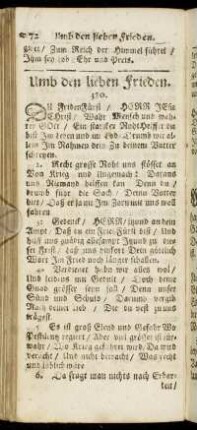 72 Umb den lieben Frieden.
Zum Reich der Himmel führet /
Ihm sey Lob / Ehr und Preis.
Umb den lieben Frieden.
DU FriedenFürst / HERR JEsu
Christ / Wahr Mensch und wah-
rer GOtt / Ein starcker NohtHelffer du
bist Im Leben und im Tod / Drumb wir al-
lein Im Nahmen dein Zu deinem Vatter
schreyen.
2. Recht grosse Noht uns stösset an
Von Krieg und Ungemach / Daraus
uns Niemand helffen kan Denn du /
drumb führ die Sach / Deinen Vatter
bitt / Daß er ja nit Im Zorn mit uns
fahr
Gedenck / HERR / jtzund an dein
Ampt / Daß du ein Fried-Fürst bist / Und
hilff uns gnädig allesampt Jtzund zu die-
ser Frist / Laß uns hinfort Dein göttlich
Wort Im Fried noch länger schallen.
4. Verdienet haben wir alles wol /
Und leidens mit Gedult / Doch deine
Gnad grösser seyn soll / Denn unser
Sünd und Schuld / Darumb vergib
5. Es ist groß Elend und Gefahr Wo
Pestilentz regiert / Aber viel grösser ist es
fürwar / Wo Krieg geführet wird / Da wird
veracht / Und nicht betracht / Was recht
und löblich wär
6. Da fragt man nichts nach Erbar-
keit /